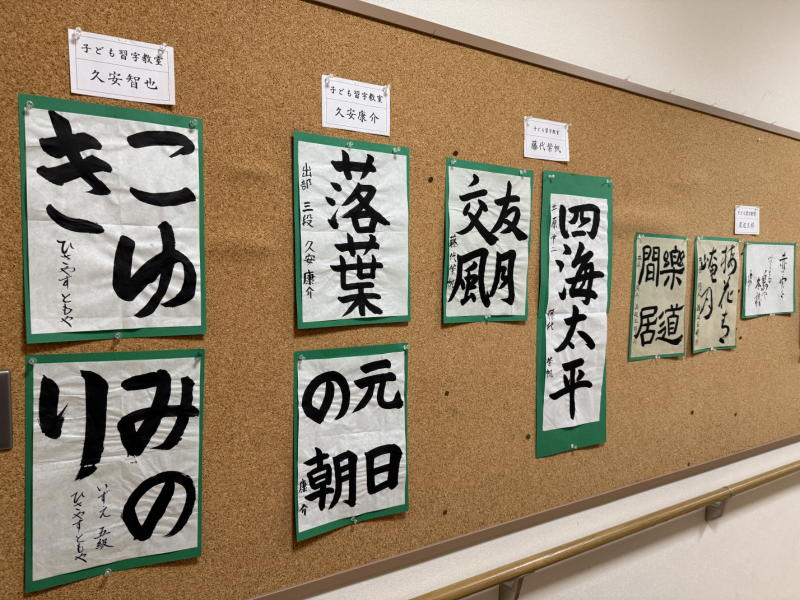 子ども習字教室
久安智也
こゆ
き
ひさやすともや
みの
り
いずえ 五級
ひさやすともや
子ども習字教室
久安康介
落葉
出部 三段 久安 康介
元日
の朝
康介
子ども習字教室
藤代紫帆
友月
交風
藤代紫帆
四海太平
子ども習字教室
樂道
間居